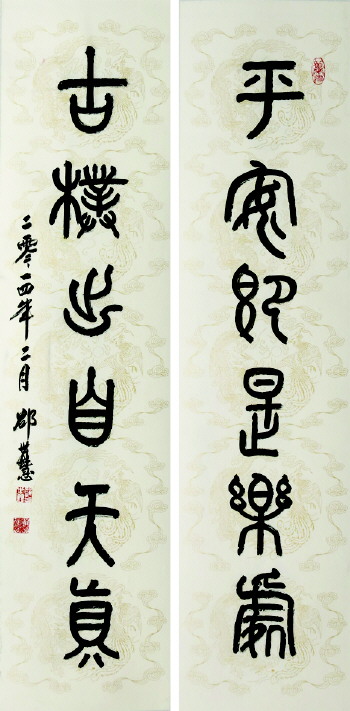 平安即是樂處
古樸出自天真
二零一四年二月 慧